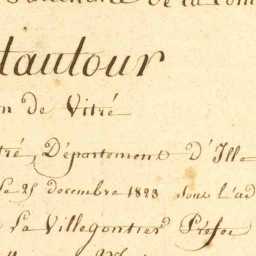 de la Com
tautour
on de Vitré
tré, Département d'Ille
le 25 décembre 1823 sous l'ad
La Villegontier Préfet